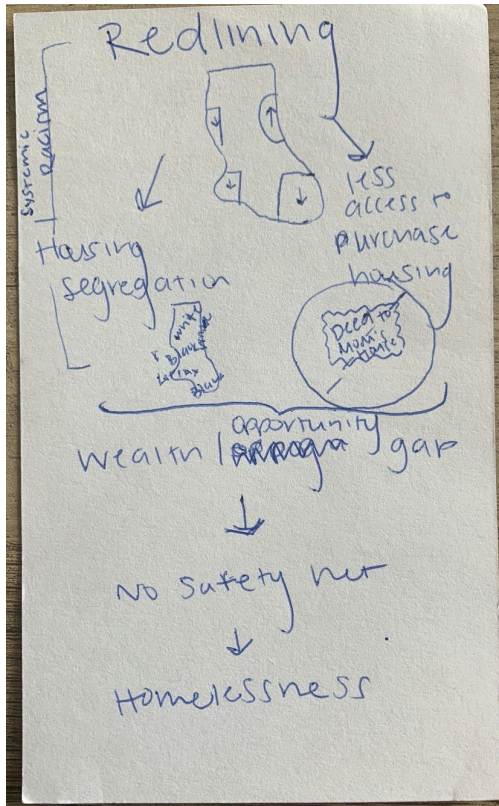 Redlining
Systemic
Racism
less
access to
purchase
housing
Housing
segregation
White
Black
Latinx
Black
Deed to
Mom's
House
opportunity
Wealth / gap
No safety net
Homelessness